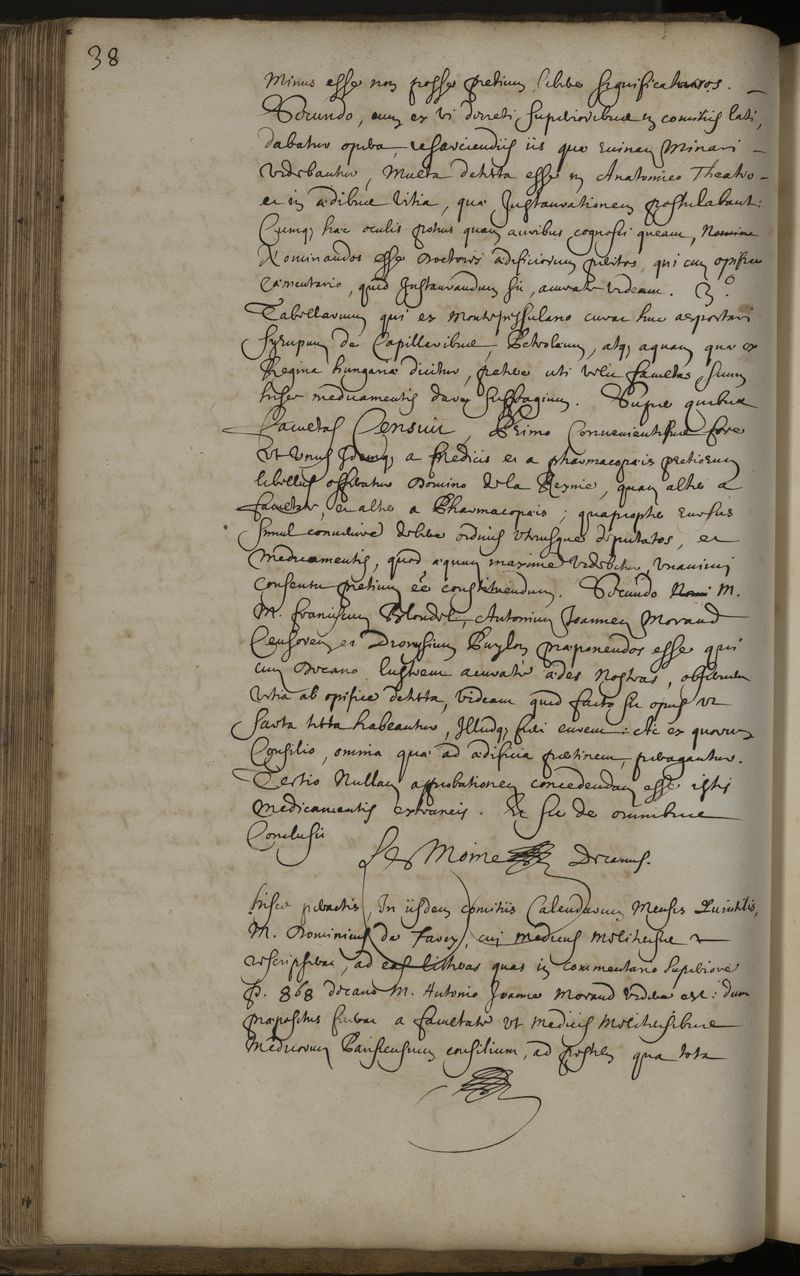 38
minus esse non posse pretium libere significaturos.
Secundo, cum ex vi decreti superioribus in comitiis lati,
dabatur opera, resarciendis iis quæ ruinam minari
videbantur, Multa detecta esse in Anatomico Theatro
et in ædibus vitia, quæ Instaurationem postulabant:
Cumq, hæc oculis potius quam auribus cognosci queant, Nomine
Nominandos esse Doctores ædificiorum peritos, qui cum opifice
cæmentario, quid Instaurandum sit, accurate videant. 3.°
Tabellarium qui ex Montepessulano curat huc asportari
Syrupum de Capillaribus, Petrolæum, atq, aquam quæ ex
Regina hungariæ dicitur, petere uti velit facultas, suum
hisce medicamentis dare suffragium. Super quibus
Facultas Censuit, Primo Convenientius fore
Ut Unus Idemq, a Medicis et a pharmacopæis pretiorum
libellus offeratur Domino de la Reynie, quam alter a
facultate, et alter a Pharmacopæis; quapropter rursus
simul convenire debere ordinis utriusque deputatos, et
Medicamentis, quod æquum maxime videbitur, unanimi
consensu pretium eê constituendum. Secundo Nomi M.
M. franciscum Blondel, Antonium Joannem Morand
Censorem et Dionysium Puylon præponendos esse qui
cum Decano lustrent accurate ædes Nostras, observent
vitia ab opifice detecta, videant quid facto sit opus ut
sarta tecta habeantur, Illudq, fieri curent: etc ex quorum
Consilio, omnia quæ ad ædificia pertinent, peragantur.
Tertio Nullam approbationem concedendam esse istis
Medicamentis extraneis. Et sic de omnibus
Conclusit
Le Moine Decanus.
hisce peractis, In iisdem comitiis Calendarum Mensis Quintilis,
M. Dominicus de Farcy, cui medicus Molihensis
rescripserat, ad eas litteras quas in commentario superiore
p. 868 decano M. Antonio Joanne Morand videre est: dum
præpositus fuerat a facultate ut medicis Molihensibus
Medicorum Parisiensium consilium, ad pestem qua tota